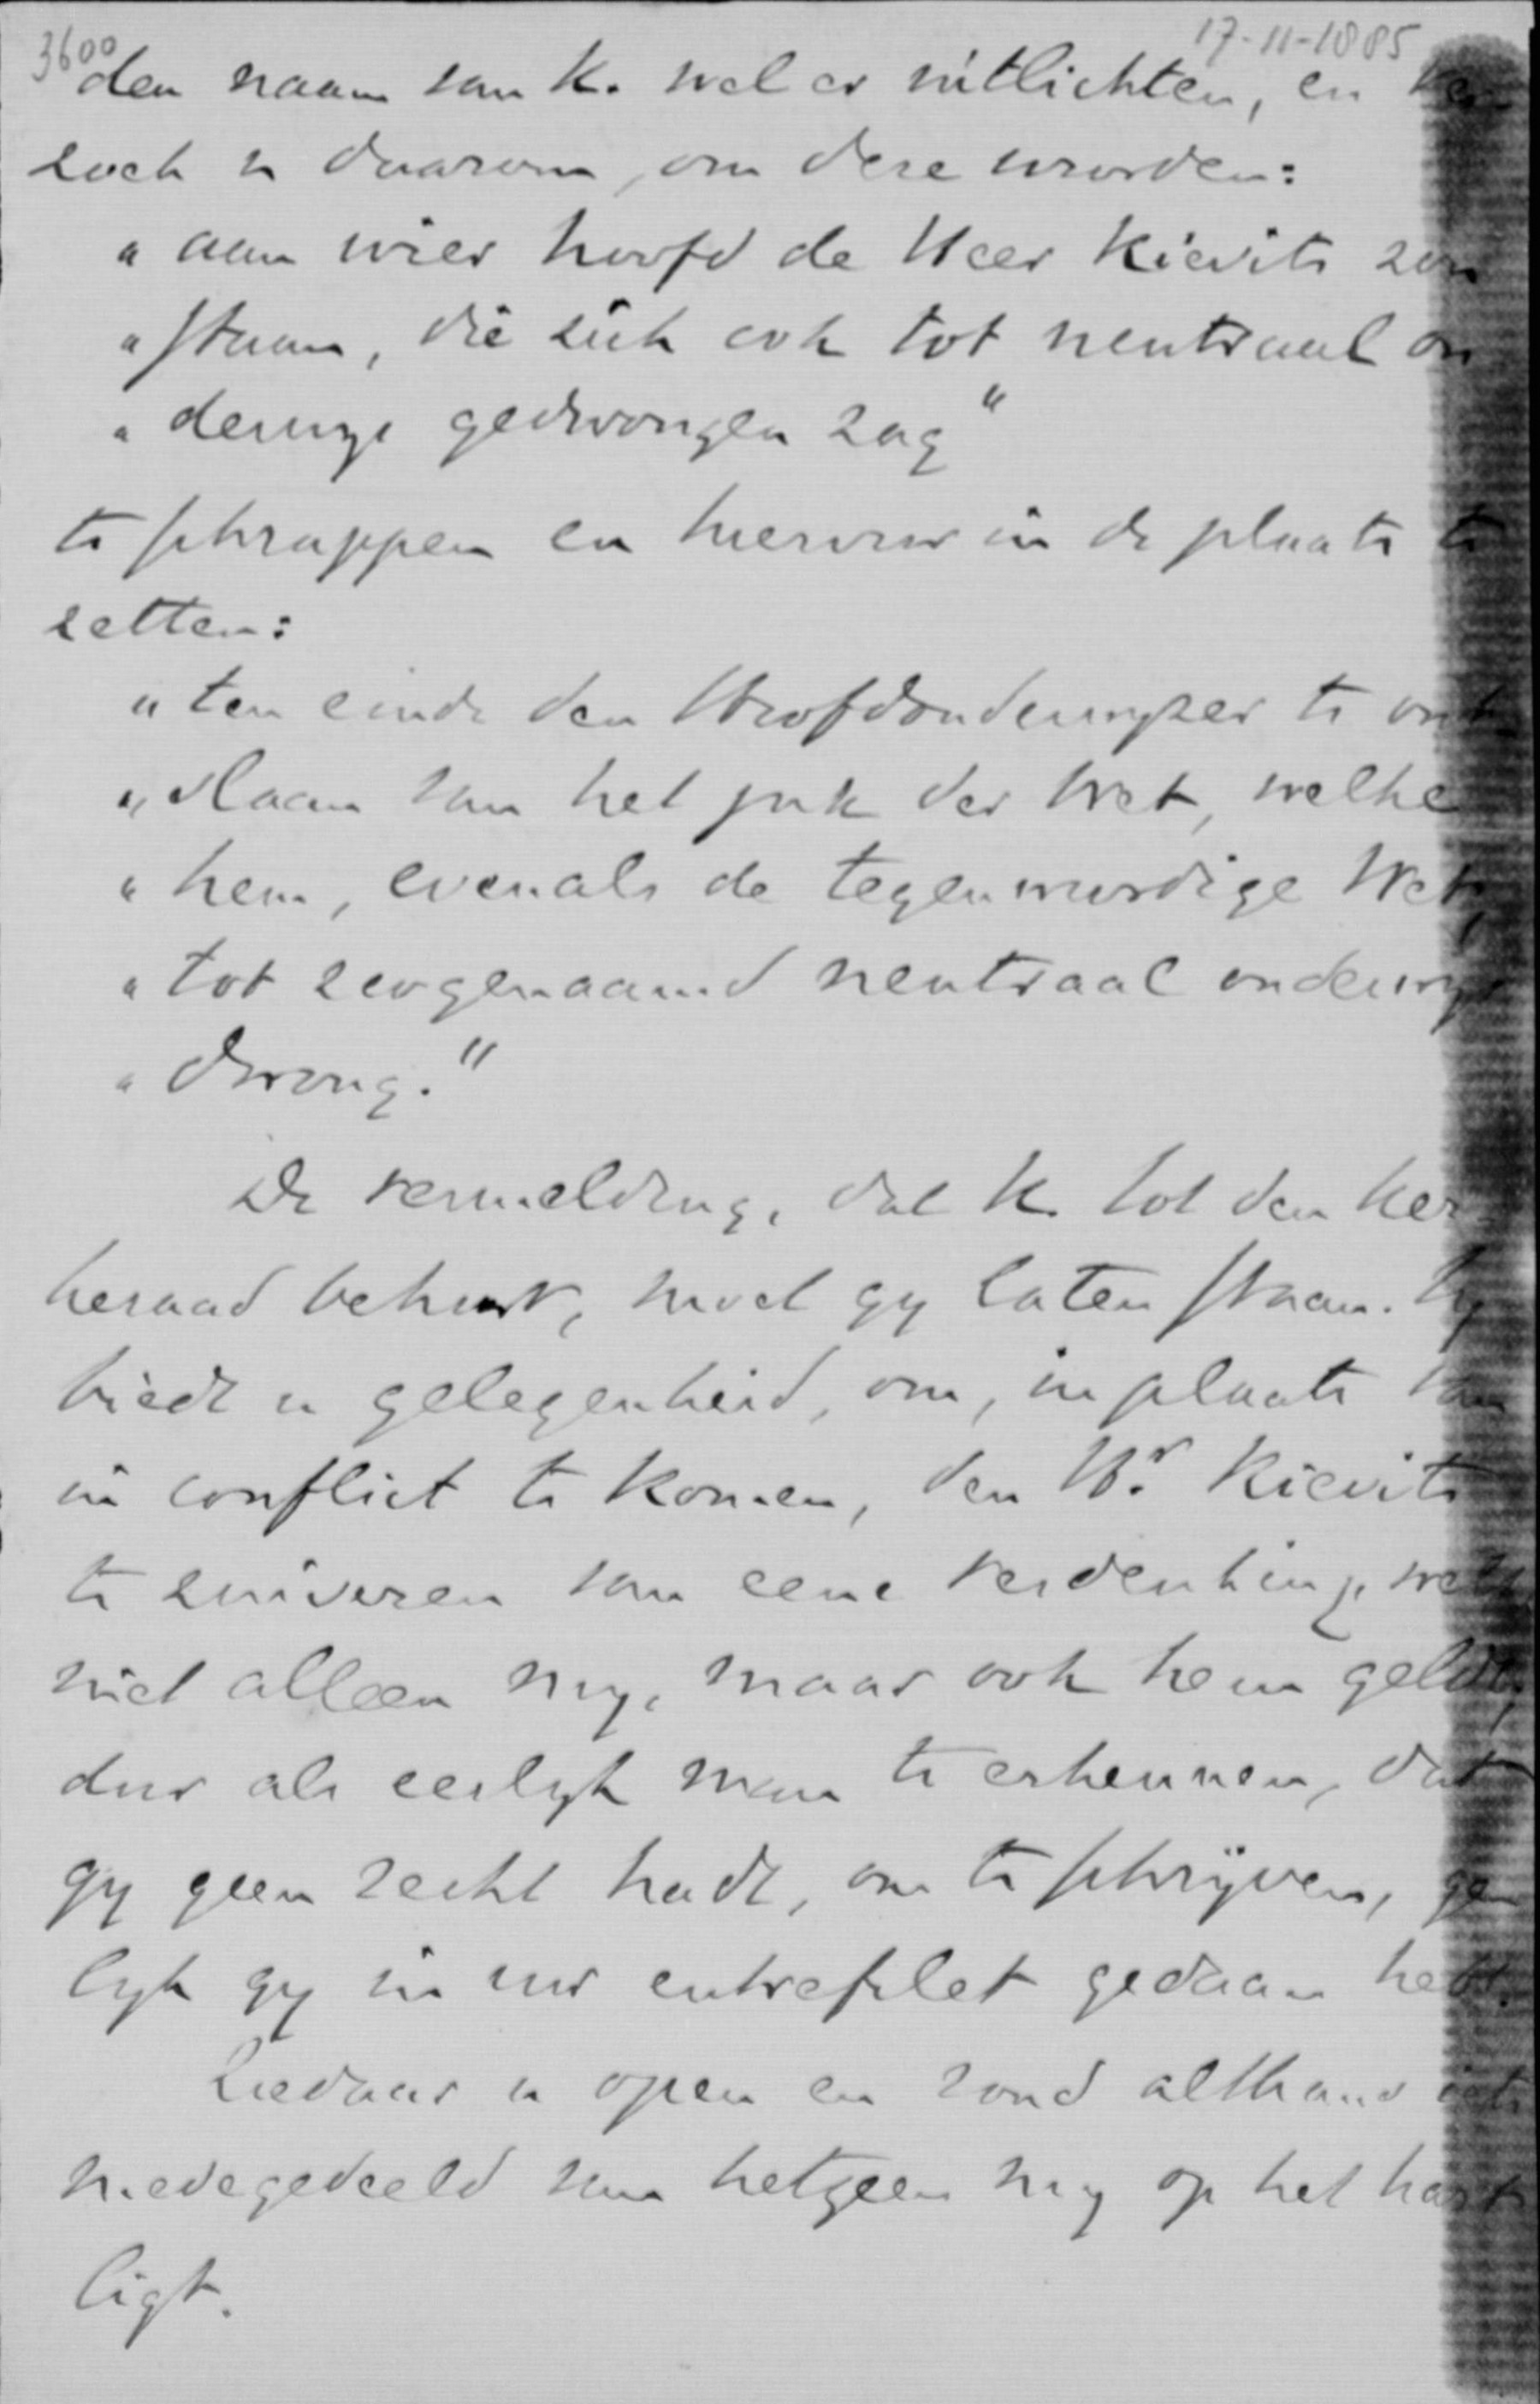 3600
17-11-1885
den naam van K. wel er uitlichten, en ver
zoek u daarom, om deze woorden:
„ aan wier hoofd de Heer Kievits zou
„ staan, die zich ook tot neutraal on
„ derwijs gedwongen zag"
te schrappen en hiervoor in de plaats te
zetten:
„ ten einde den Hoofdonderwijzer te ont
„ slaan van het juk der Wet, welke
„ hem, evenals de tegenwoordige Wet,
„ tot zoogenaamd neutraal onderwijs
„ dwong."
De vermelding, dat K. tot den ker
keraad behoort, moet gij laten staan. Hij
biedt u gelegenheid, om, in plaats van
in conflict te komen, den Hr. Kievits
te zuiveren van eene verdenking, welke
niet alleen mij, maar ook hem geldt,
door als eerlijk man te erkennen, dat
gij geen recht hadt, om te schrijven, ge
lijk gij in uw entrefilet gedaan hebt.
Ziedaar u open en rond althans iets
medegedeeld van hetgeen mij op het hart
ligt.